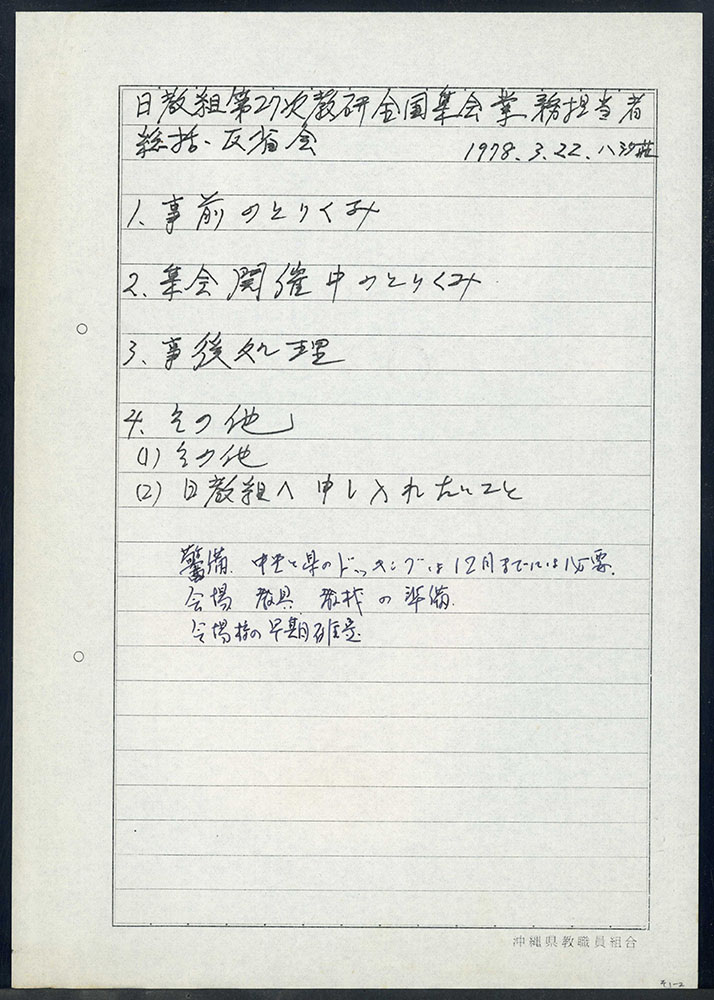 日教組第27次教研全国集会業務担当者
総括・反省会 1978.3.22. 八汐荘
1. 事前のとりくみ
2. 集会開催中のとりくみ
3. 事後処理
4. その他
(1) その他
(2) 日教組へ申し入れたいこと
警備 中央と県のドッキングは12月までには必要.
会場 教具 教材の準備.
会場校の早期確定
沖縄県教職員組合